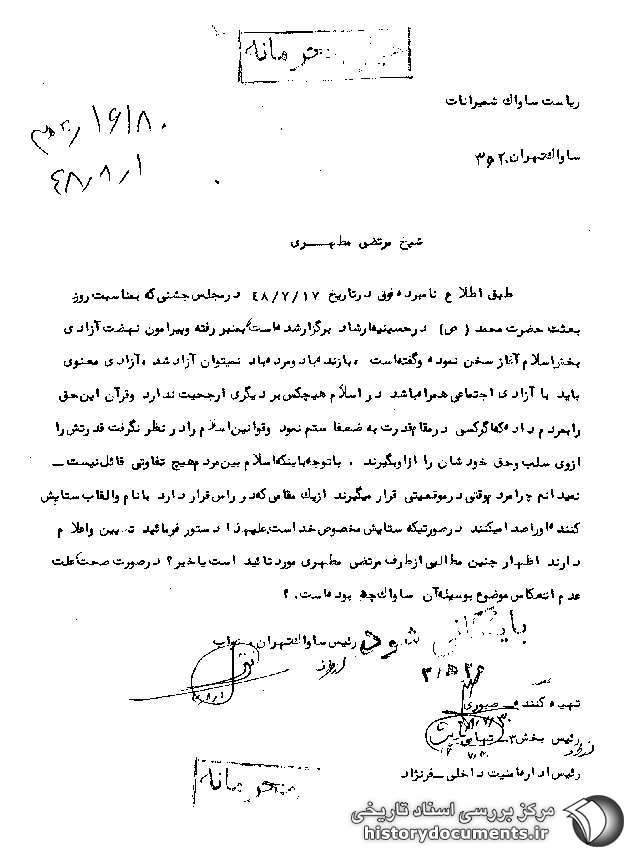 خیلی محرمانه
ریاست ساواك شمیرانات
۱۶۱۸۰
۴۸/۸/۱
ساواك تهران ۲۰ ه ۳
شیخ مرتضی مطهـــری
طبق اطلاع نامبرده فوق در تاریخ ۴۸/۷/۱۷ در مجلس جشنی که بمناسبت روز
بعثت حضرت محمد (ص) در حسینیه ارشاد برگزار شده است بمنبر رفته و پیرامون نهضت آزادی
بخش اسلام آغاز سخن نموده و گفته است . با زنده باد و مرده باد نمیتوان آزاد شد . آزادی معنوی
باید با آزادی اجتماعی همراه باشد در اسلام هیچکس بر دیگری ارجحیت ندارد و قرآن این حق
را بمردم داده که اگر کسی در مقام قدرت به ضعفا ستم نمود و قوانین اسلام را در نظر نگرفت قدرتش را
از وی سلب و حق خودشان را از او بگیرند . با توجه باینکه اسلام بین مردم هیچ تفاوتی قائل نیست ـ
نمیدانم چرا مردم وقتی در موقعیتی قرار میگیرند از یك مقامی که در راس قرار دارد با نام و القاب ستایش
کننده او را صدا میکنند در صورتیکه ستایش مخصوص خداست علیهذا دستور فرمائید تعیین و اعلام
دارند اظهار چنین مطالبی از طرف مرتضی مطهری مورد تائید است یا خیر ؟ در صورت صحت علت
عدم انعکاس موضوع بوسیله آن ساواك چه بوده است . ؟
بایگانی شود
رئیس ساواك تهران ـ نواب
از طرف
۴۸/۸/۱
تهیه کننده ـ صبوری
۴۸/۷/۳۰
رئیس بخش ۳ ـ
از طرف
رئیس اداره امنیت داخلی ـ فرنژاد
محرمانه
مرکز بررسی اسناد تاریخی
historydocuments.ir